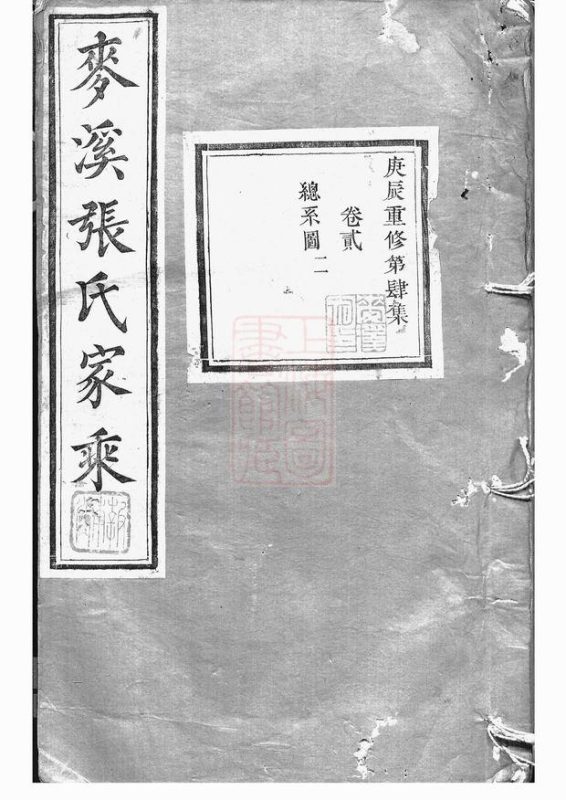 麥溪張氏家乘
庚辰重修第肆集
卷貳
總系圖二